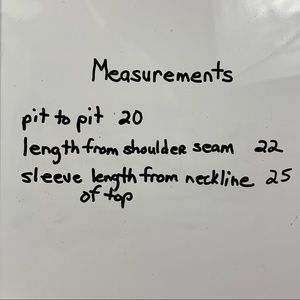 Measurements
pit to pit 20
length from shoulder seam 22
sleeve length from neckline 25
of top